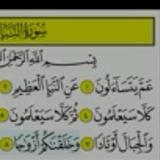 سُورَةُ النَّبَإِ
بِسْمِ اللَّهِ الرَّحْمَٰنِ
عَمَّ يَتَسَآءَلُونَ ١ عَنِ ٱلنَّبَإِ ٱلْعَظِيمِ ٢
كَلَّا سَيَعْلَمُونَ ٤ ثُمَّ كَلَّا سَيَعْلَمُونَ ٥
وَٱلْجِبَالَ أَوْتَادًا ٧ وَخَلَقْنَٰكُمْ أَزْوَٰجًا ٨